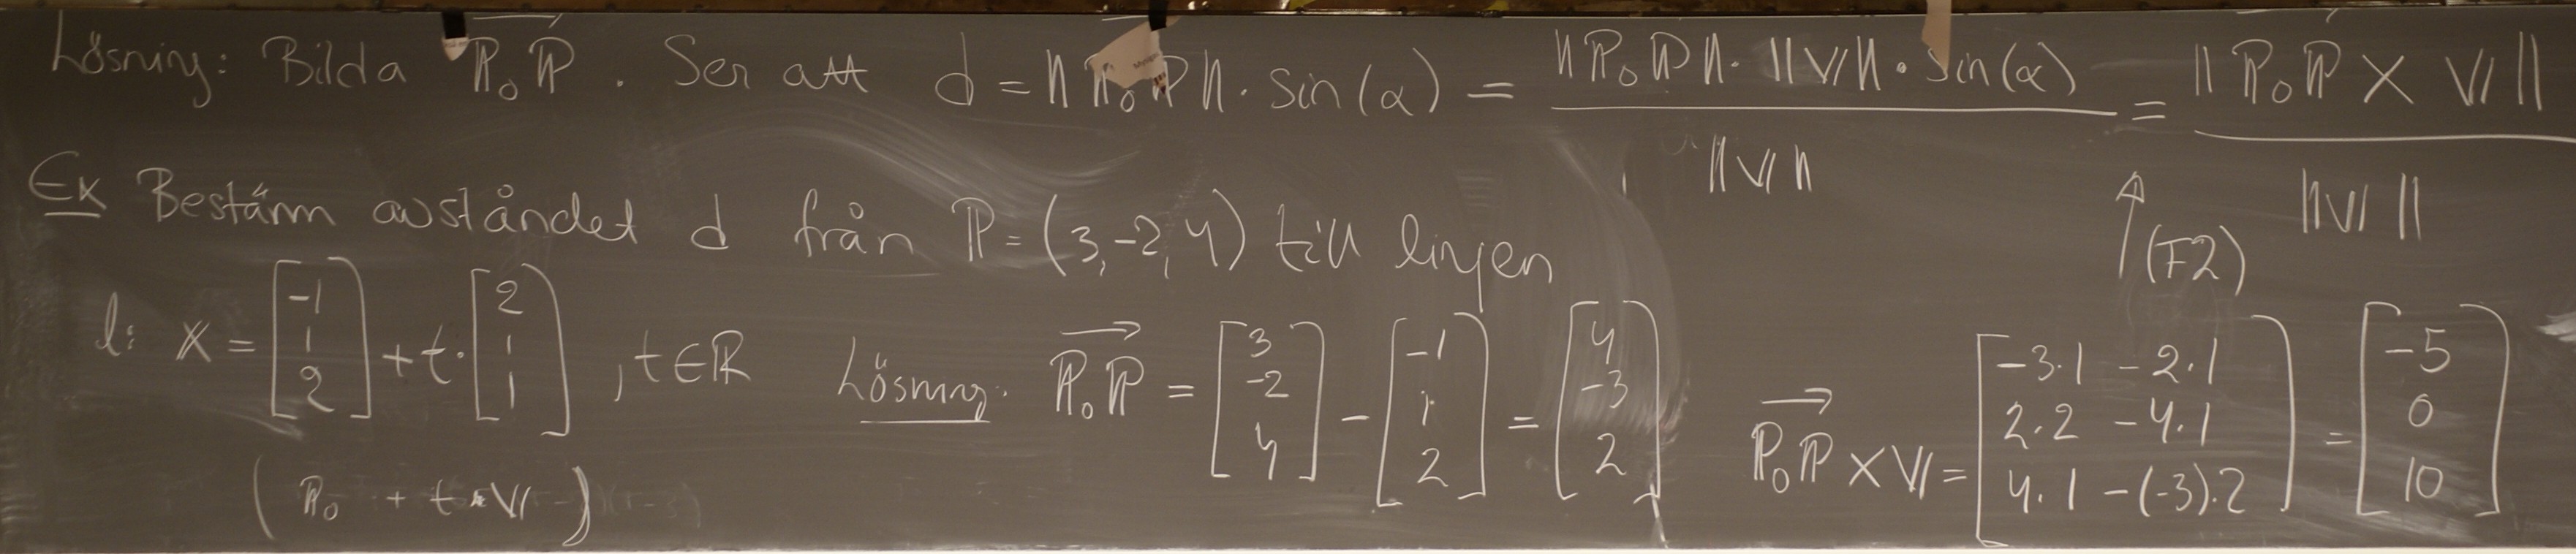 Lösning: Bilda P₀P. Ser att d = ||P₀P|| · sin(α) = ||P₀P|| · ||v|| · sin(α) / ||v|| = ||P₀P × v|| / ||v||
↑ (F2)
Ex Bestäm avståndet d från P = (3, -2, 4) till linjen
l: x = [-1 1 2] + t · [2 1 1], t ∈ R
(P₀ + t · v)
Lösning. P₀P = [3 -2 4] - [-1 1 2] = [4 -3 2]
P₀P × v = [-3·1 - 2·1 2·2 - 4·1 4·1 - (-3)·2] = [-5 0 10]